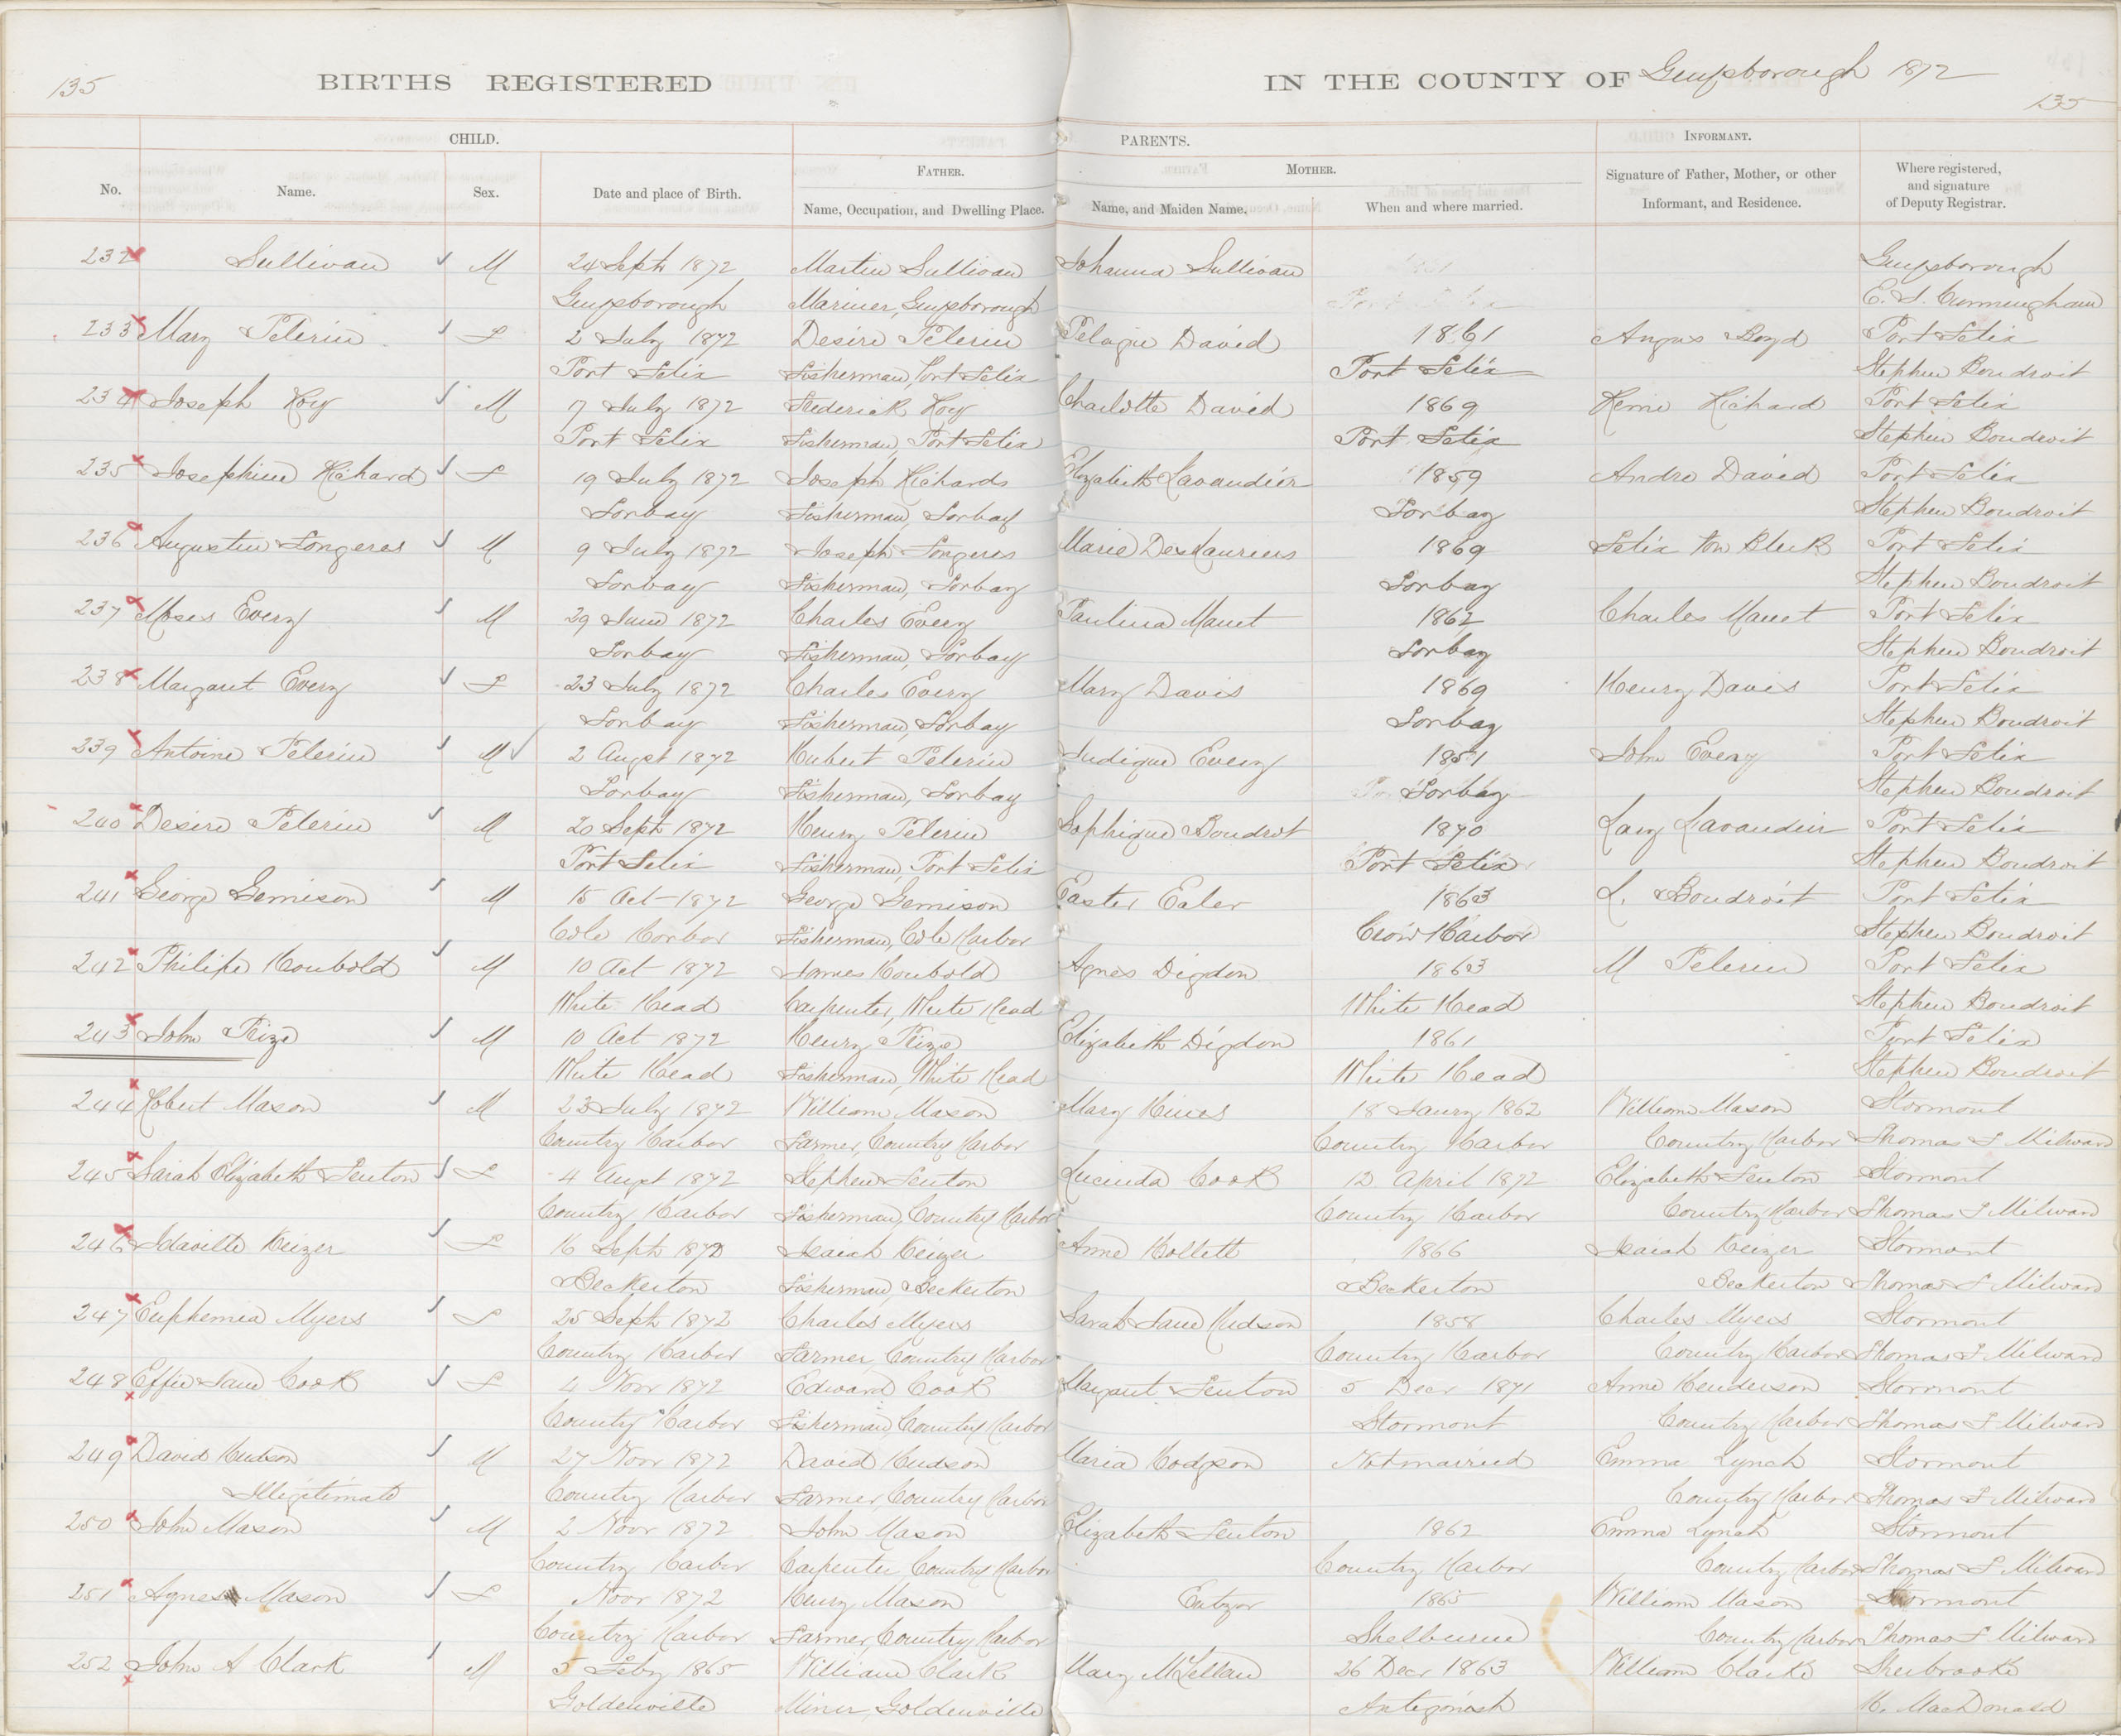 135
BIRTHS REGISTERED IN THE COUNTY OF Guysborough 1872
135
CHILD. PARENTS. INFORMANT.
No. Name. Sex. Date and place of Birth. FATHER. Name, Occupation, and Dwelling Place. MOTHER. Name, and Maiden Name. When and where married. Signature of Father, Mother, or other Informant, and Residence. Where registered, and signature of Deputy Registrar.
232 Sullivan M 24 Sept 1872 Martin Sullivan Johanna Sullivan Guysborough
Guysborough Mariner, Guysborough E. S. Cunningham
233 Mary Pelerin F 2 July 1872 Desire Pelerin Pelagie David 1861 Angus Boyd Port Felix
Port Felix Fisherman, Port Felix Port Felix Stephen Boudroit
234 Joseph Roy M 7 July 1872 Frederick Roy Charlotte David 1869 Remi Richard Port Felix
Port Felix Fisherman, Port Felix Port Felix Stephen Boudroit
235 Josephine Richard F 19 July 1872 Joseph Richards Elizabeth Lavandier 1859 Andre David Port Felix
Torbay Fisherman, Torbay Torbay Stephen Boudroit
236 Augustin Fongeres M 9 July 1872 Joseph Fongeres Marie 1869 Felix Port Felix
Torbay Fisherman, Torbay Torbay Stephen Boudroit
237 Moses Avery M 29 June 1872 Charles Avery Paulina Manet 1862 Charles Manet Port Felix
Torbay Fisherman, Torbay Torbay Stephen Boudroit
238 Margaret Avery F 23 July 1872 Charles Avery Mary Davis 1869 Henry Davis Port Felix
Torbay Fisherman, Torbay Torbay Stephen Boudroit
239 Antoine Pelerin M 2 Augst 1872 Hubert Pelerin Judique Avery 1851 John Avery Port Felix
Torbay Fisherman, Torbay Torbay Stephen Boudroit
240 Desire Pelerin M 20 Sept 1872 Henry Pelerin Sophique Boudrot 1870 Lavandier Port Felix
Port Felix Fisherman, Port Felix Port Felix Stephen Boudroit
241 George Jemison M 15 Oct 1872 George Jemison Easter Ealer 1863 L. Boudroit Port Felix
Cole Harbor Fisherman, Cole Harbor Crow Harbor Stephen Boudroit
242 Philipe Houbold M 10 Oct 1872 James Houbold Agnes Digdon 1863 M Pelerin Port Felix
White Head Carpenter, White Head White Head Stephen Boudroit
243 John Prize M 10 Oct 1872 Henry Prize Elizabeth Digdon 1861 Port Felix
White Head Fisherman, White Head White Head Stephen Boudroit
244 Robert Mason M 23 July 1872 William Mason Mary Hines 18 Janry 1862 William Mason Stormont
Country Harbor Farmer, Country Harbor Country Harbor Country Harbor Thomas S Milward
245 Sarah Elizabeth Fenton F 4 Augst 1872 Stephen Fenton Lucinda Cook 12 April 1872 Elizabeth Fenton Stormont
Country Harbor Fisherman, Country Harbor Country Harbor Country Harbor Thomas S Milward
246 Idaville Keizer F 16 Sept 1872 Isaiah Keizer Anne Hollett 1866 Isaiah Keizer Stormont
Beckerton Fisherman, Beckerton Beckerton Beckerton Thomas S Milward
247 Euphemia Myers F 25 Sept 1872 Charles Myers Sarah Jane Hudson 1858 Charles Myers Stormont
Country Harbor Farmer, Country Harbor Country Harbor Country Harbor Thomas S Milward
248 Effie Jane Cook F 4 Novr 1872 Edward Cook Margaret Fenton 5 Decr 1871 Anne Henderson Stormont
Country Harbor Fisherman, Country Harbor Stormont Country Harbor Thomas S Milward
249 David Hudson M 27 Novr 1872 David Hudson Maria Hodgson Not married Emma Lynch Stormont
Illigitimate Country Harbor Farmer, Country Harbor Country Harbor Thomas S Milward
250 John Mason M 2 Novr 1872 John Mason Elizabeth Fenton 1862 Emma Lynch Stormont
Country Harbor Carpenter, Country Harbor Country Harbor Country Harbor Thomas S Milward
251 Agnes Mason F Novr 1872 Henry Mason 1865 William Mason Stormont
Country Harbor Farmer, Country Harbor Shelburne Country Harbor Thomas S Milward
252 John A Clark M 5 Feby 1865 William Clark Mary McLellan 26 Decr 1863 William Clarke Sherbrooke
Goldenville Miner, Goldenville Antegonish H. MacDonald